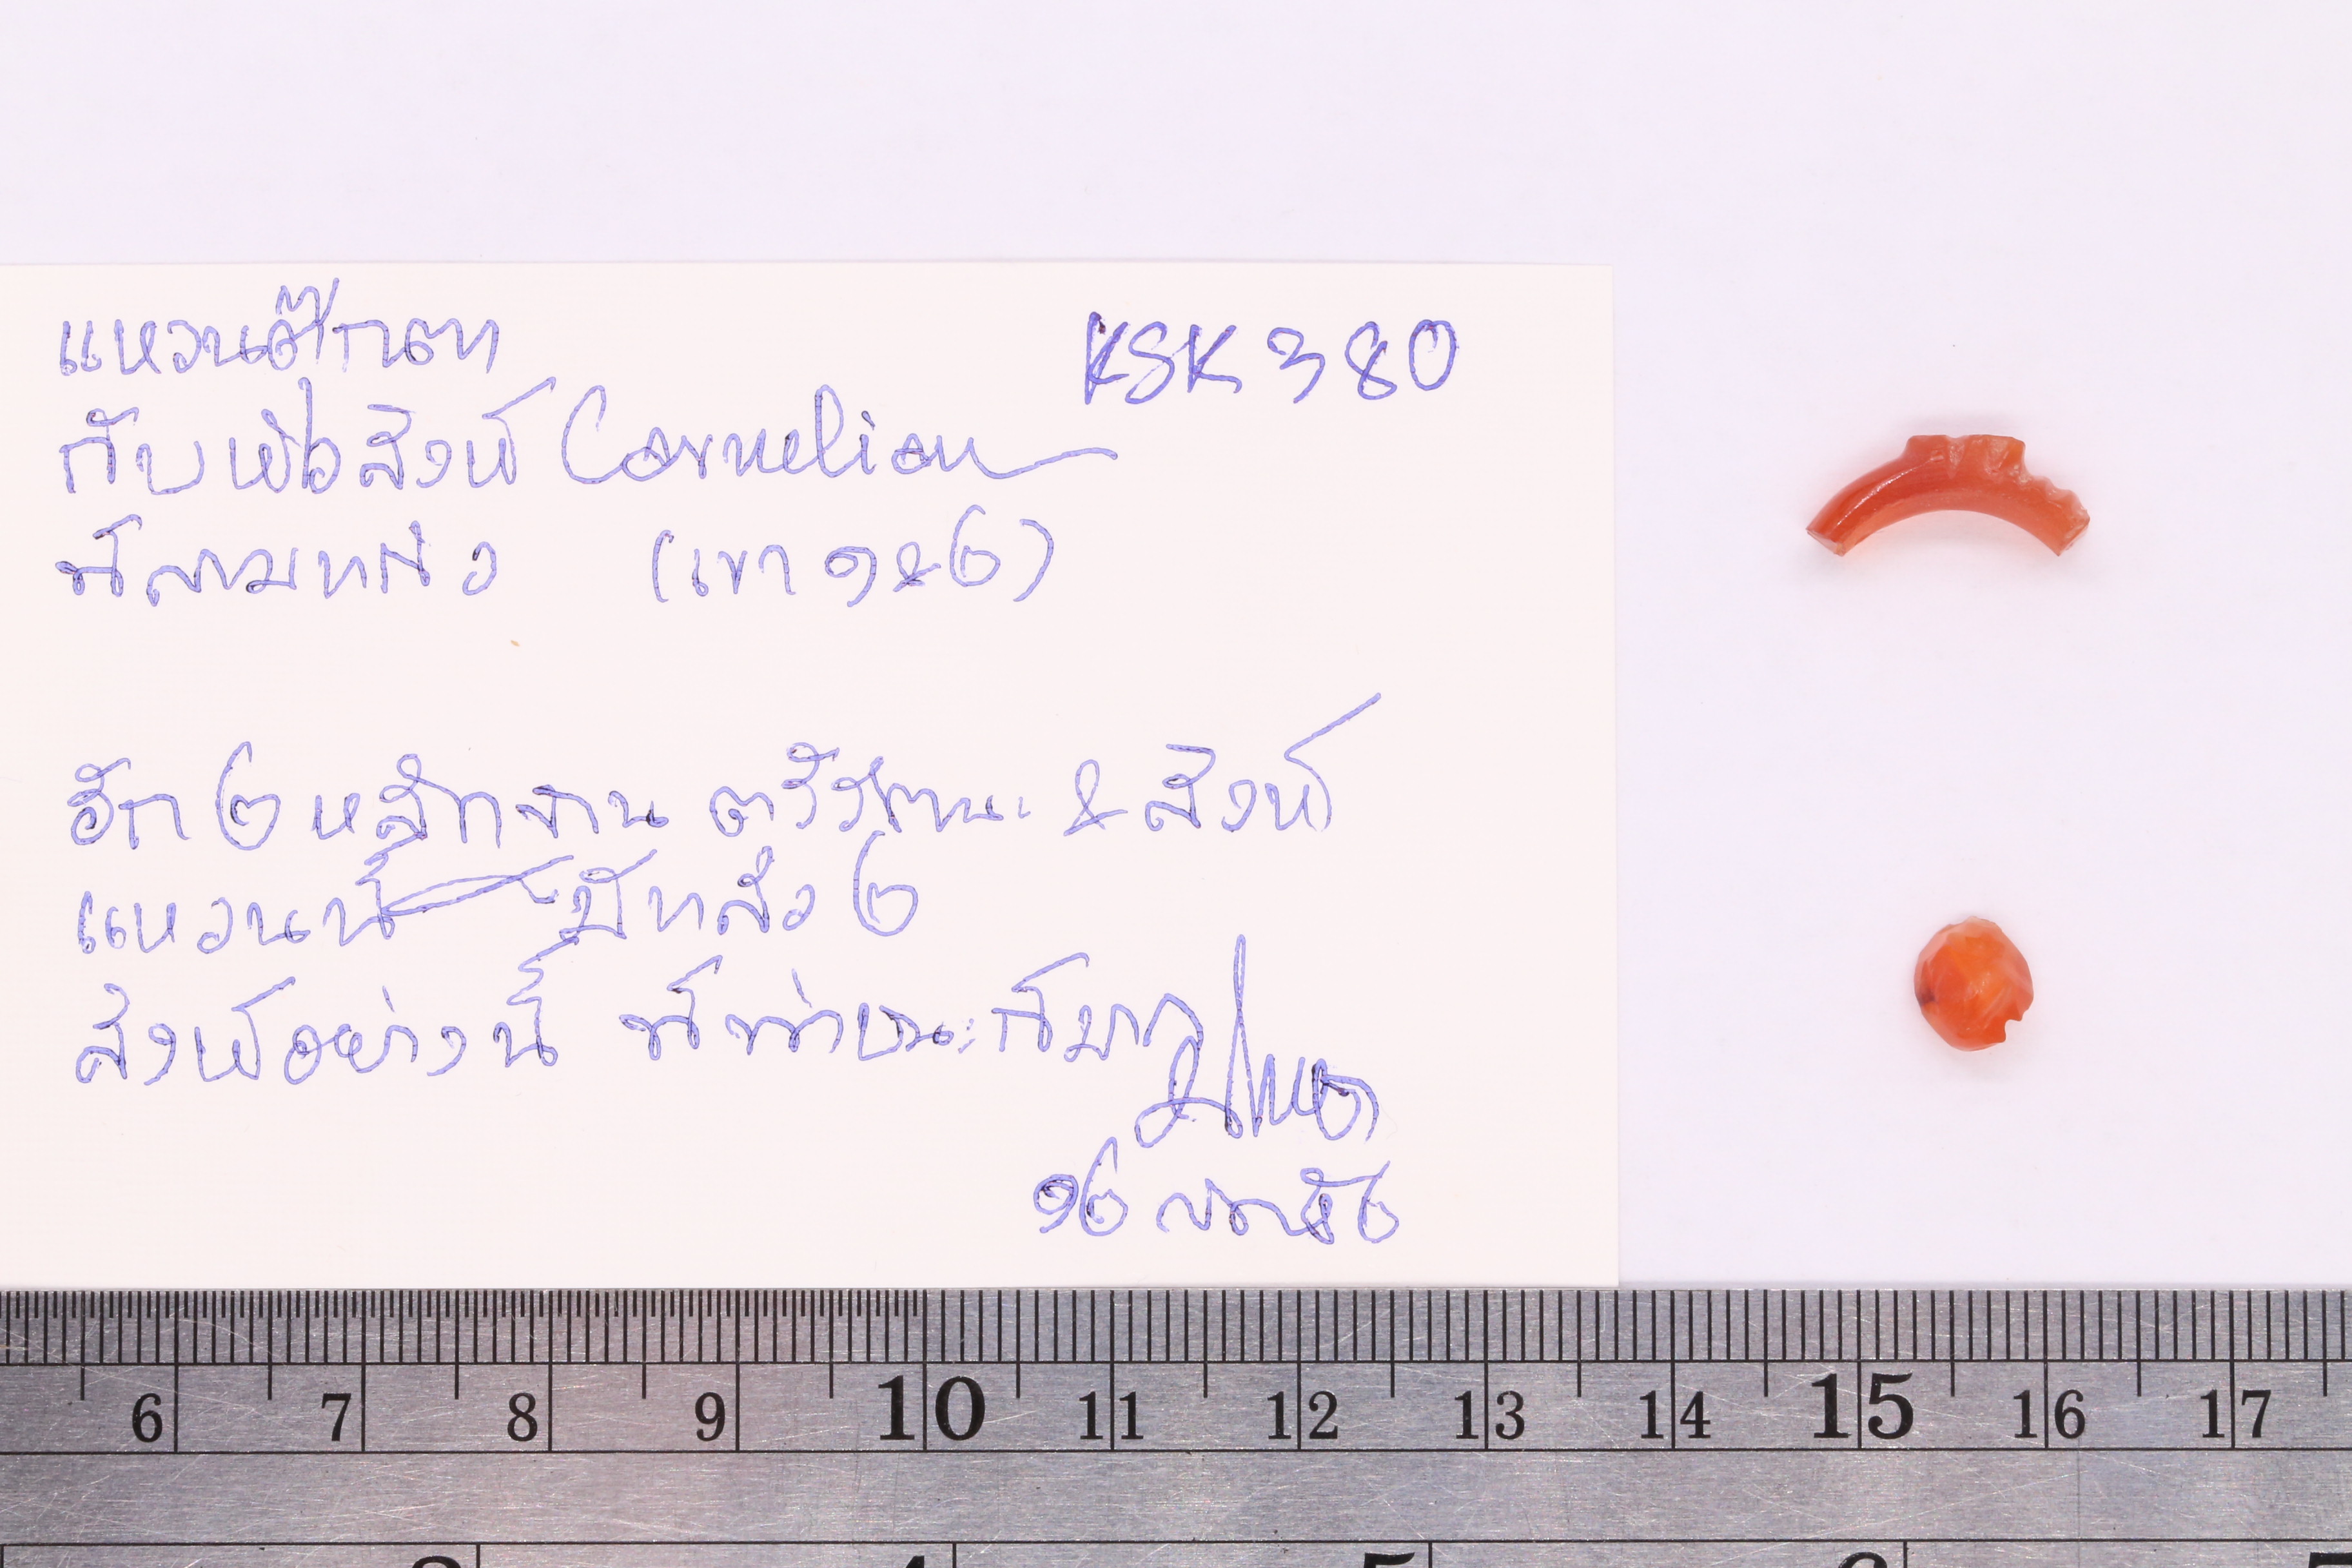 แหวนตุ๊กตา
KSK 380
กับหัวสิงห์ Cornelian
ที่สามแก้ว (เขา ๑&๒)
อีก ๒ หลักฐาน ตรีรัตนะ & สิงห์
แหวนนี้ มีแล้ว ๒
สิงห์อย่างนี้ ที่ท่าชนะก็มา
๑๒
6 7 8 9 10 11 12 13 14 15 16 17